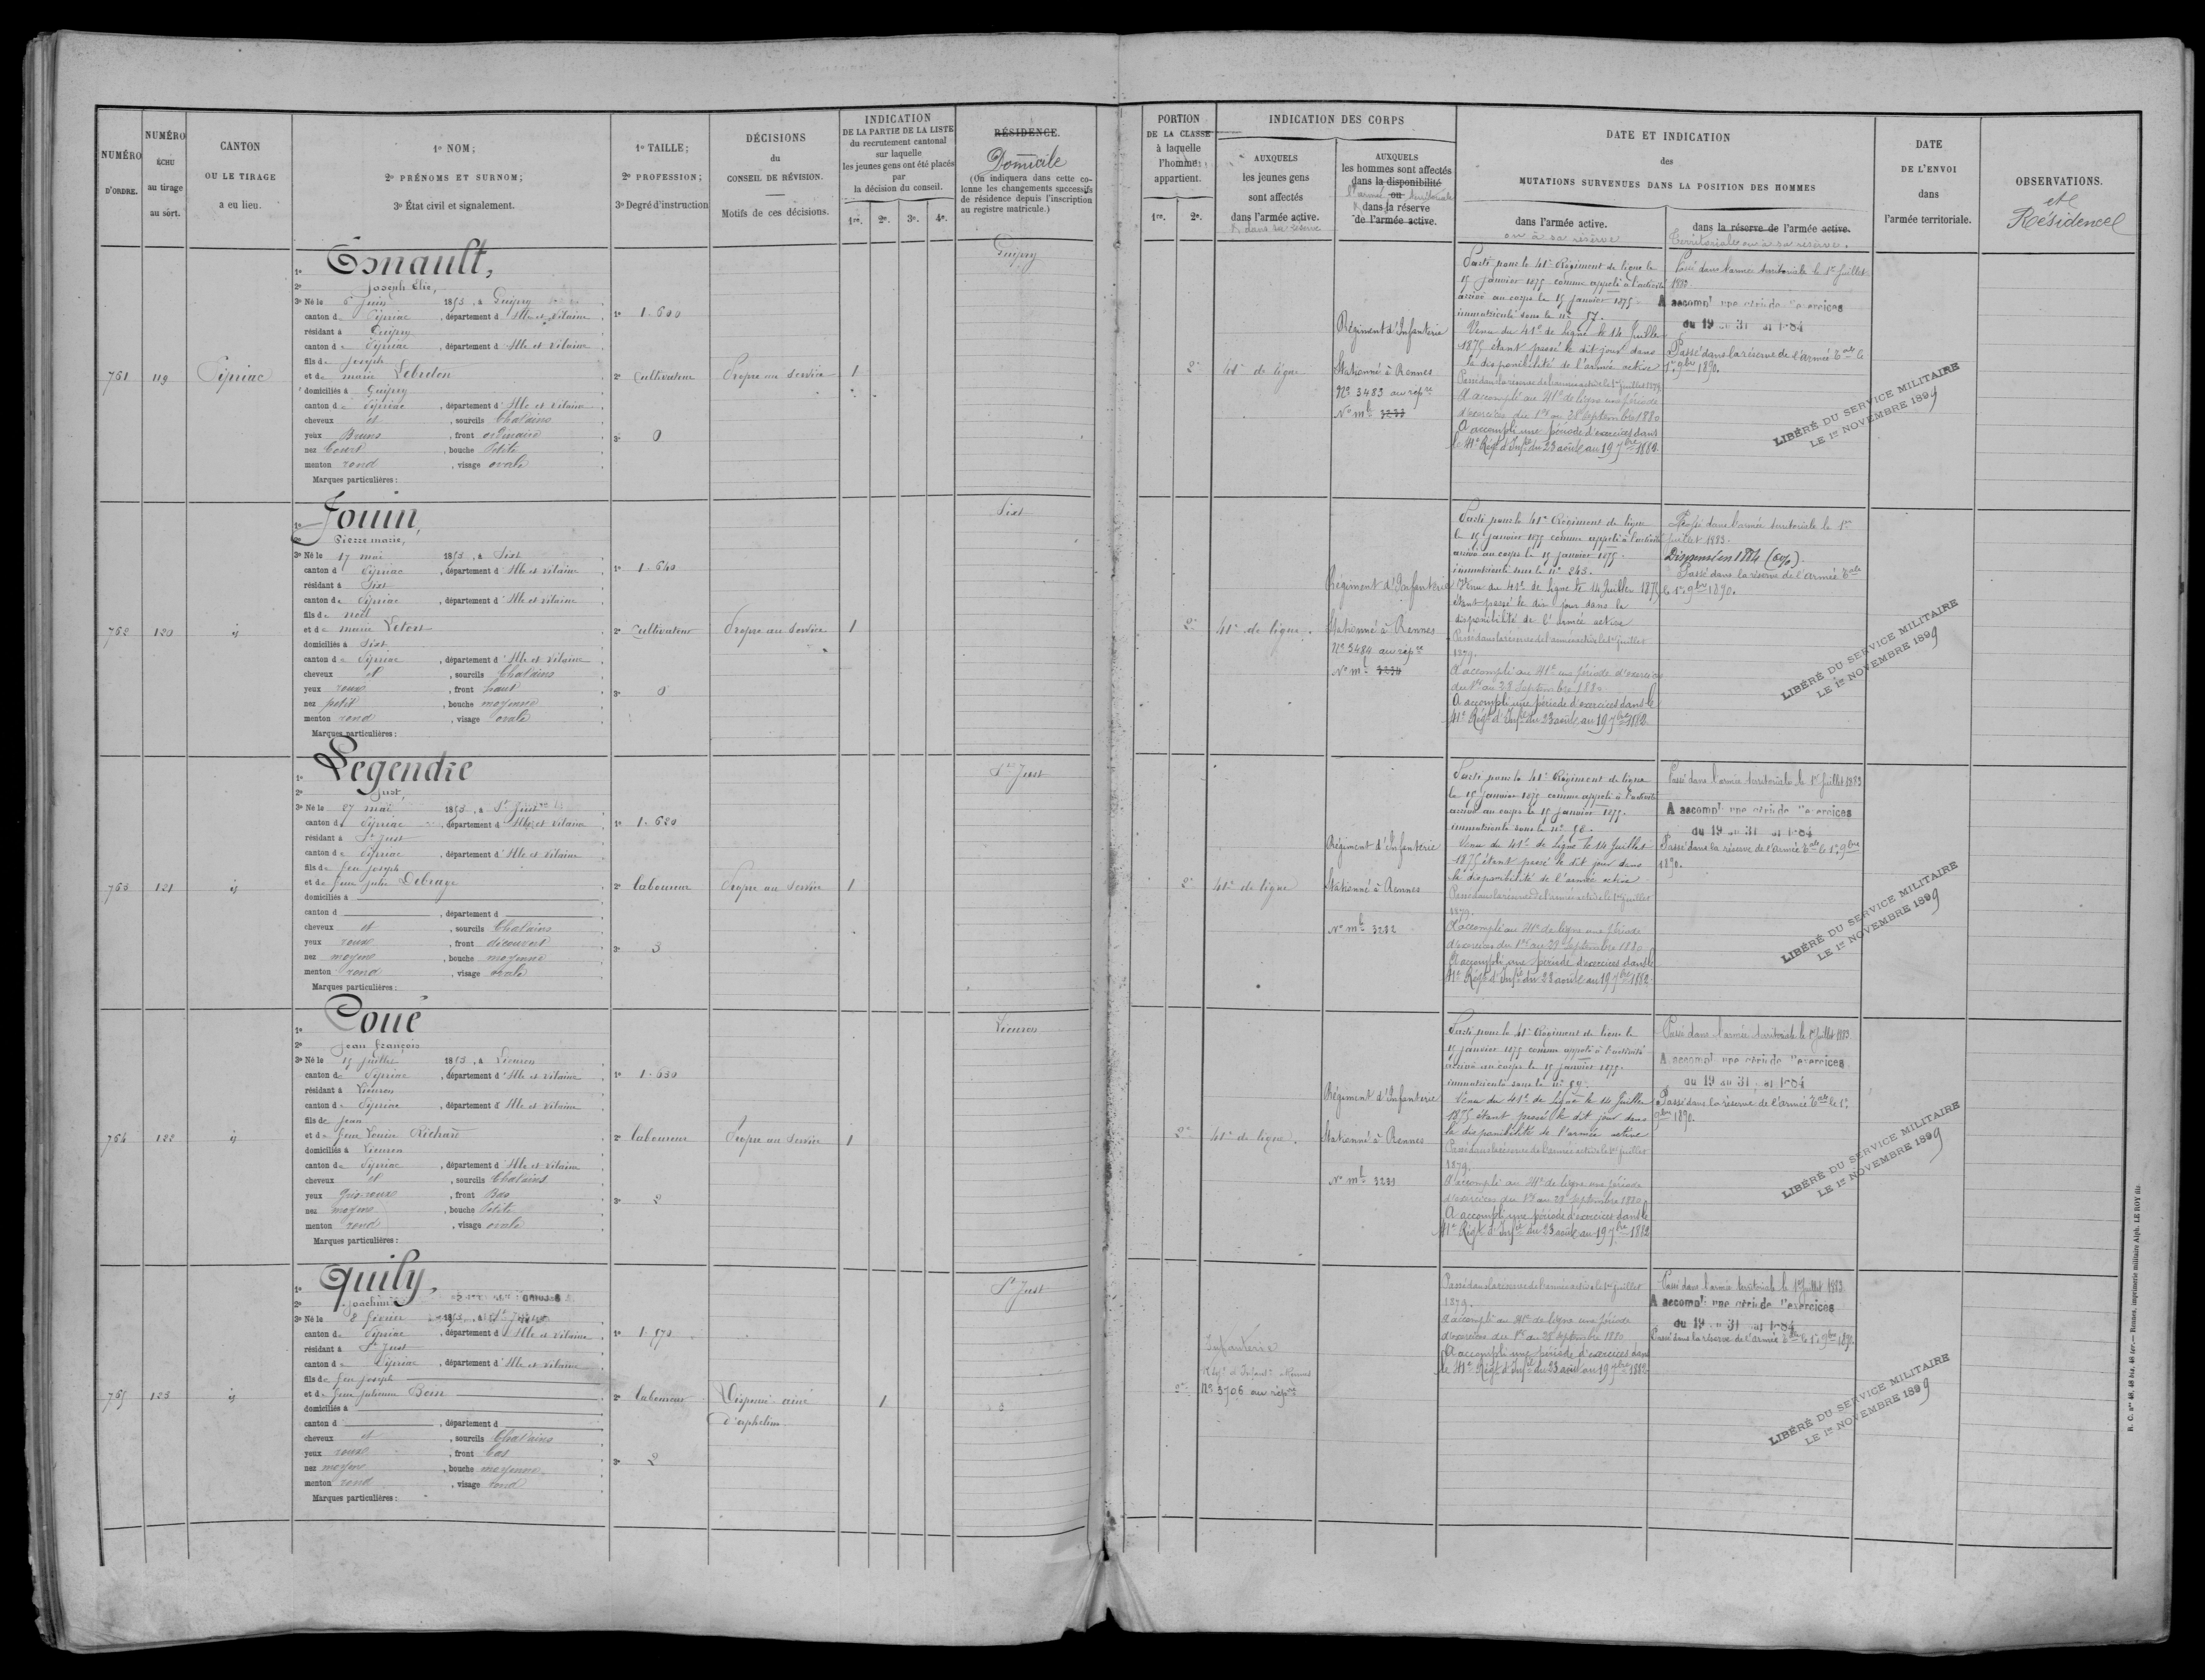 NUMÉRO D'ORDRE.
NUMÉRO ÉCHU au tirage au sort.
CANTON OU LE TIRAGE a eu lieu.
1º NOM;
2º PRÉNOMS ET SURNOM;
3º État civil et signalement.
1º TAILLE;
2º PROFESSION;
3º Degré d'instruction
DÉCISIONS du CONSEIL DE RÉVISION.
Motifs de ces décisions.
INDICATION
DE LA PARTIE DE LA LISTE
du recrutement cantonal
sur laquelle
les jeunes gens ont été placés
par
la décision du conseil.
1re. 2e. 3e. 4e.
RÉSIDENCE.
Domicile
(On indiquera dans cette co-
lonne les changements successifs
de résidence depuis l'inscription
au registre matricule.)
PORTION
DE LA CLASSE
à laquelle
l'homme
appartient.
1re. 2e.
INDICATION DES CORPS
AUXQUELS
les jeunes gens
sont affectés
dans l'armée active.
& dans sa réserve
AUXQUELS
les hommes sont affectés
dans la disponibilité
ou
dans la réserve
de l'armée active.
DATE ET INDICATION
des
MUTATIONS SURVENUES DANS LA POSITION DES HOMMES
dans l'armée active.
ou à sa réserve
dans la réserve de l'armée active.
Territoriale ou à sa réserve.
DATE
DE L'ENVOI
dans
l'armée territoriale.
OBSERVATIONS.
et
Résidence
761
119
Sipriac
1º Esnault,
2º Joseph Elie,
3º Né le 6 Juin 1853, à Guipry
canton de Sipriac, département d'Ille et Vilaine
résidant à Guipry
canton de Sipriac, département d'Ille et Vilaine
fils de Joseph
et de marie Lebreton
domiciliés à Guipry
canton de Sipriac, département d'Ille et Vilaine
cheveux et, sourcils Chatains
yeux Bruns, front ordinaire
nez Court, bouche Petite
menton rond, visage ovale
Marques particulières:
1º 1.600
2º Cultivateur
3º 0
Propre au Service
1
Guipry
2e
41e de ligne
Régiment d'Infanterie
Stationné à Rennes
Nº 3483 au rep re
Nº mle 3233
Parti pour le 41e Régiment de ligne le
15 Janvier 1875 comme appelé à l'activité
arrivé au corps le 15 Janvier 1875.
immatriculé sous le nº 57.
Venu du 41e de ligne le 14 Juillet
1875 étant passé le dit jour dans
la disponibilité de l'armée active
Passé dans la réserve de l'armée active le 1er juillet 1879.
A accompli au 41e de ligne une période
d'exercices du 1er au 28 Septembre 1880
A accompli une période d'exercices dans
le 41e Régt d'Infie du 23 août au 19 7bre 1882.
Passé dans l'armée territoriale le 1er Juillet
1883
A accompli une période d'exercices
du 19 au 31 1884
Passé dans la réserve de l'armée Tale le
1er 9bre 1890.
LIBÉRÉ DU SERVICE MILITAIRE
LE 1er NOVEMBRE 1899
762
120
id
1º Jouin,
2º Pierre marie,
3º Né le 17 mai 1853, à Sixt
canton d Sipriac, département d'Ille et Vilaine
résidant à Sixt
canton de Sipriac, département d'Ille et Vilaine
fils de noël
et de marie Letort
domiciliés à Sixt
canton de Sipriac, département d'Ille et Vilaine
cheveux et, sourcils Chatains
yeux roux, front haut
nez petit, bouche moyenne
menton rond, visage ovale
Marques particulières:
1º 1.640
2º Cultivateur
3º 0
Propre au Service
1
Sixt
2e
41e de ligne.
Régiment d'Infanterie
Stationné à Rennes
Nº 3484 au rep re
Nº mle 3234
Parti pour le 41e Régiment de ligne
le 15 Janvier 1875 comme appelé à l'activité
arrivé au corps le 15 Janvier 1875.
immatriculé sous le nº 243.
Venu du 41e de ligne le 14 Juillet 1875
étant passé le dit jour dans la
disponibilité de l'armée active
Passé dans la réserve de l'armée active le 1er juillet
1879.
A accompli au 41e une période d'exercices
du 1er au 28 Septembre 1880
A accompli une période d'exercices dans le
41e Régt d'Infie du 23 août au 19 7bre 1882
Passé dans l'armée territoriale le 1er
juillet 1883.
Dispensé en 1884 (6%)
Passé dans la réserve de l'armée Tale
le 1er 9bre 1890.
LIBÉRÉ DU SERVICE MILITAIRE
LE 1er NOVEMBRE 1899
763
121
id
1º Legendre
2º Just,
3º Né le 27 mai 1853, à St Just
canton d Sipriac, département d'Ille et Vilaine
résidant à St Just
canton de Sipriac, département d'Ille et Vilaine
fils de feu Joseph
et de feue Julie Debraye
domiciliés à
canton d, département d
cheveux et, sourcils Chatains
yeux roux, front découvert
nez moyen, bouche moyenne
menton rond, visage ovale
Marques particulières:
1º 1.620
2º laboureur
3º 3
Propre au Service
1
St Just
2e
41e de ligne
Régiment d'Infanterie
Stationné à Rennes
Nº mle 3232
Parti pour le 41e Régiment de ligne
le 15 Janvier 1875 comme appelé à l'activité
arrivé au corps le 15 Janvier 1875.
immatriculé sous le nº 58.
Venu du 41e de ligne le 14 Juillet
1875 étant passé le dit jour dans
la disponibilité de l'armée active
Passé dans la réserve de l'armée active le 1er juillet
1879.
A accompli au 41e de ligne une période
d'exercices du 1er au 29 Septembre 1880
A accompli une période d'exercices dans le
41e Régt d'Infie du 23 août au 19 7bre 1882
Passé dans l'armée territoriale le 1er Juillet 1883
A accompli une période d'exercices
du 19 au 31 1884
Passé dans la réserve de l'armée Tale le 1er 9bre
1890.
LIBÉRÉ DU SERVICE MILITAIRE
LE 1er NOVEMBRE 1899
764
122
id
1º Coué
2º Jean François
3º Né le 15 Juillet 1853, à Lieuron
canton de Sipriac, département d'Ille et Vilaine
résidant à Lieuron
canton de Sipriac, département d'Ille et Vilaine
fils de Jean
et de feue Louise Richard
domiciliés à Lieuron
canton de Sipriac, département d'Ille et Vilaine
cheveux et, sourcils Chatains
yeux gris roux, front Bas
nez moyen, bouche Petite
menton rond, visage ovale
Marques particulières:
1º 1.630
2º laboureur
3º 2
Propre au Service
1
Lieuron
2e
41e de ligne.
Régiment d'Infanterie
Stationné à Rennes
Nº mle 3231
Parti pour le 41e Régiment de ligne le
15 Janvier 1875 comme appelé à l'activité
arrivé au corps le 15 Janvier 1875.
immatriculé sous le nº 59.
Venu du 41e de Ligne le 14 Juillet
1875 étant passé le dit jour dans
la disponibilité de l'armée active
Passé dans la réserve de l'armée active le 1er juillet
1879.
A accompli au 41e de ligne une période
d'exercices du 1er au 29 Septembre 1880
A accompli une période d'exercices dans le
41e Régt d'Infie du 23 août au 19 7bre 1882
Passé dans l'armée territoriale le 1er Juillet 1883
A accompli une période d'exercices
du 19 au 31 1884
Passé dans la réserve de l'armée Tale le 1er
9bre 1890.
LIBÉRÉ DU SERVICE MILITAIRE
LE 1er NOVEMBRE 1899
765
123
id
1º Quily,
2º Joachim
3º Né le 8 février 1853, à St Just
canton de Sipriac, département d'Ille et Vilaine
résidant à St Just
canton de Sipriac, département d'Ille et Vilaine
fils de feu Joseph
et de feue Julienne Boin
domiciliés à
canton d, département d
cheveux et, sourcils Chatains
yeux roux, front bas
nez moyen, bouche moyenne
menton rond, visage rond
Marques particulières:
1º 1.570
2º laboureur
3º 2
Dispensé ainé
d'orphelins.
1
St Just
2e
Infanterie
Régt d'Infant. Rennes
Nº 3706 au rep re
Passé dans la réserve de l'armée active le 1er juillet
1879.
A accompli au 41e de ligne une période
d'exercices du 1er au 28 Septembre 1880
A accompli une période d'exercices dans
le 41e Régt d'Infie du 23 août au 19 7bre 1882
Passé dans l'armée territoriale le 1er Juillet 1883
A accompli une période d'exercices
du 19 au 31 1884
Passé dans la réserve de l'armée Tale le 1er 9bre 1890
LIBÉRÉ DU SERVICE MILITAIRE
LE 1er NOVEMBRE 1899
Rennes, imprimerie militaire Alph. LE ROY fils